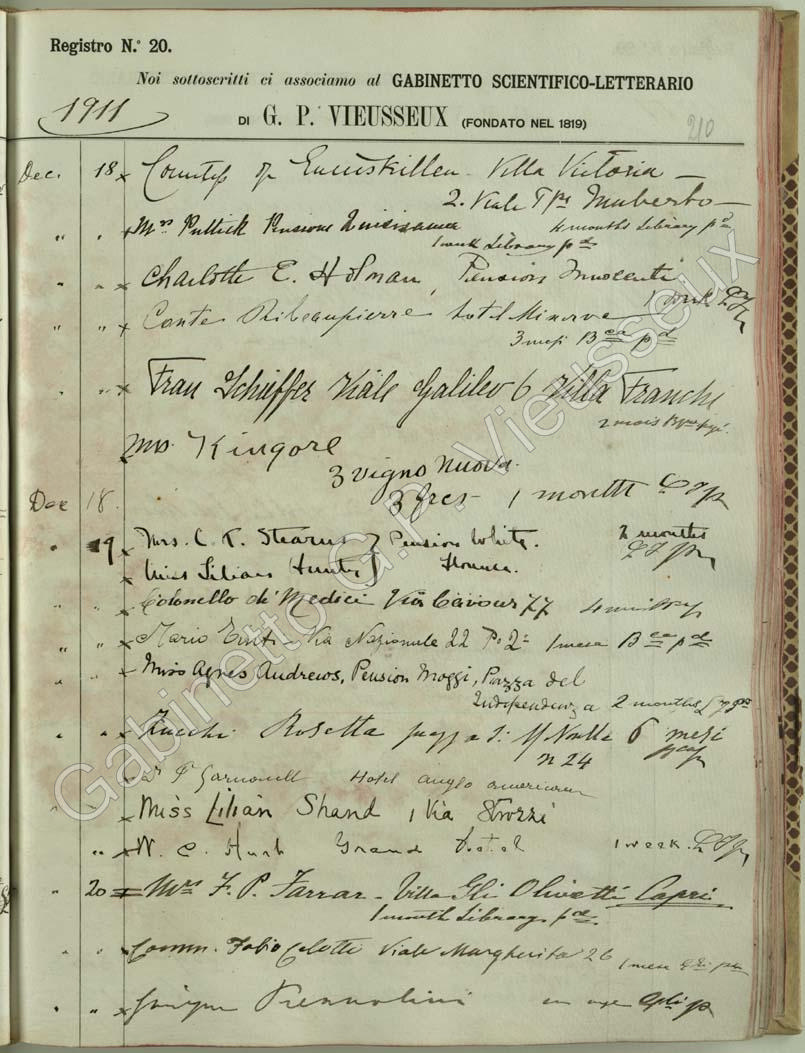 Registro N.° 20.
Noi sottoscritti ci associamo al GABINETTO SCIENTIFICO-LETTERARIO
1911
DI G. P. VIEUSSEUX (FONDATO NEL 1819)
210
Dec. 18 x Countess of Enniskillen - Villa Victoria -
2. Viale Pps Umberto -
" " x Mrs Puttick Pensione 4 months Library pd
1 month Library pd
" " x Charlotte E. Holman, Pension Innocenti
1 week
" " x Conte Ribeaupierre Hotel Minerva
3 mesi Bca pd
" " x Frau Schieffer Viale Galileo 6 Villa Franchi
2 mois
x Mrs. Kingore
3 vigna nuova.
Dec 18. 3 frcs - 1 month
" 19 x Mrs. C. K. Stearns } Pension White. 2 months
x Miss Lilian Hunter } Florence.
" " x Colonello de' Medici Via Cavour 77
" " x Mario Via Nazionale 22 Po 2o 1 mese Bca pd
" " x Miss Agnes Andrews, Pension Moggi, Piazza del
Indipendenza 2 months
" " x Zucchi Rosetta 6 mesi
n 24
x Hotel anglo americain
" x Miss Lilian Shand 1 Via Strozzi
" x W. C. Grand Hotel 1 week.
" 20 x Mrs F. P. Farrar - Villa Gli Olivetti Capri
1 month Library pd.
" " x Comm. Fabio Viale Margherita 26 1 mese
" " x
Gabinetto G.P. Vieusseux